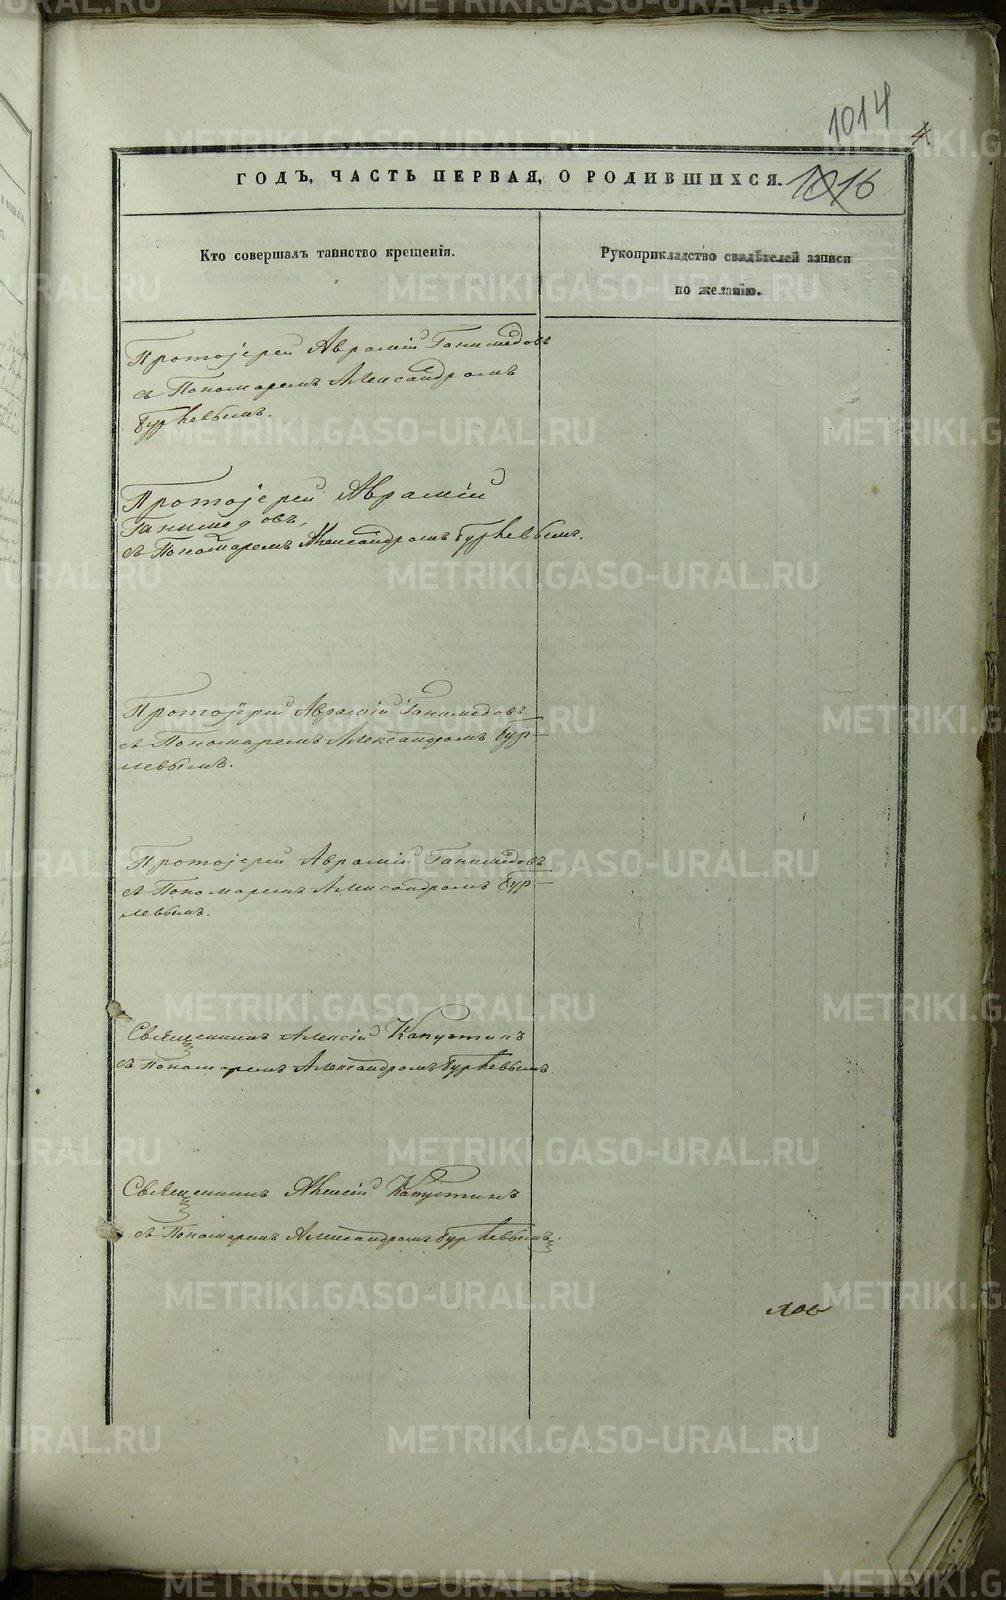 1014
4.
ГОДЪ, ЧАСТЬ ПЕРВАЯ, О РОДИВШИХСЯ. 1016
Кто совершалъ таинство крещенія.
Рукоприкладство свидѣтелей записи
по желанію.
Протоіерей Аврамій Ганимедовъ
съ Пономаремъ Александромъ
Бурлевымъ.
Протоіерей Аврамій
Ганимедовъ,
съ Пономаремъ Александромъ Бурлевымъ.
Протоіерей Аврамій Ганимедовъ
съ Пономаремъ Александромъ Бур-
левымъ.
Протоіерей Аврамій Ганимедовъ
съ Пономаремъ Александромъ Бур-
левымъ.
Священникъ Алексій Капустинъ
съ Пономаремъ Александромъ Бурлевымъ.
Священникъ Алексій Капустинъ
съ Пономаремъ Александромъ Бурлевымъ.
METRIKI.GASO-URAL.RU